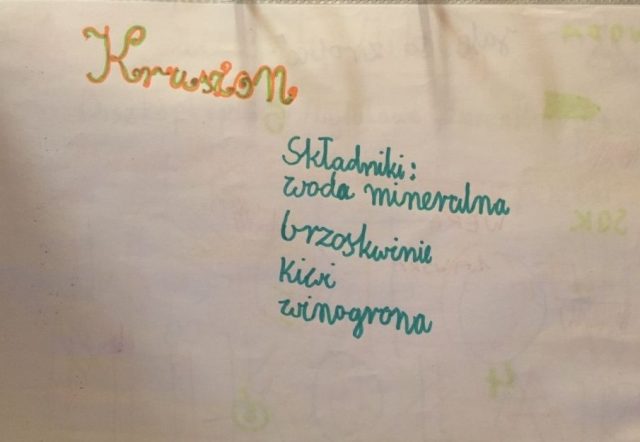 Kruszon
Składniki:
woda mineralna
brzoskwinie
kiwi
winogrona